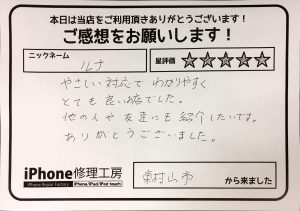 本日は当店をご利用頂きありがとうございます！
ご感想をお願いします！
ニックネーム
ルナ
星評価 ★★★★★
やさしい対応でわかりやすく
とても良いお店でした。
他の人や友達にも紹介したいです。
ありがとうございました。
iPhone修理工房
iPhone Repair Factory iPhone/iPad/iPod touch
東村山市 から来ました